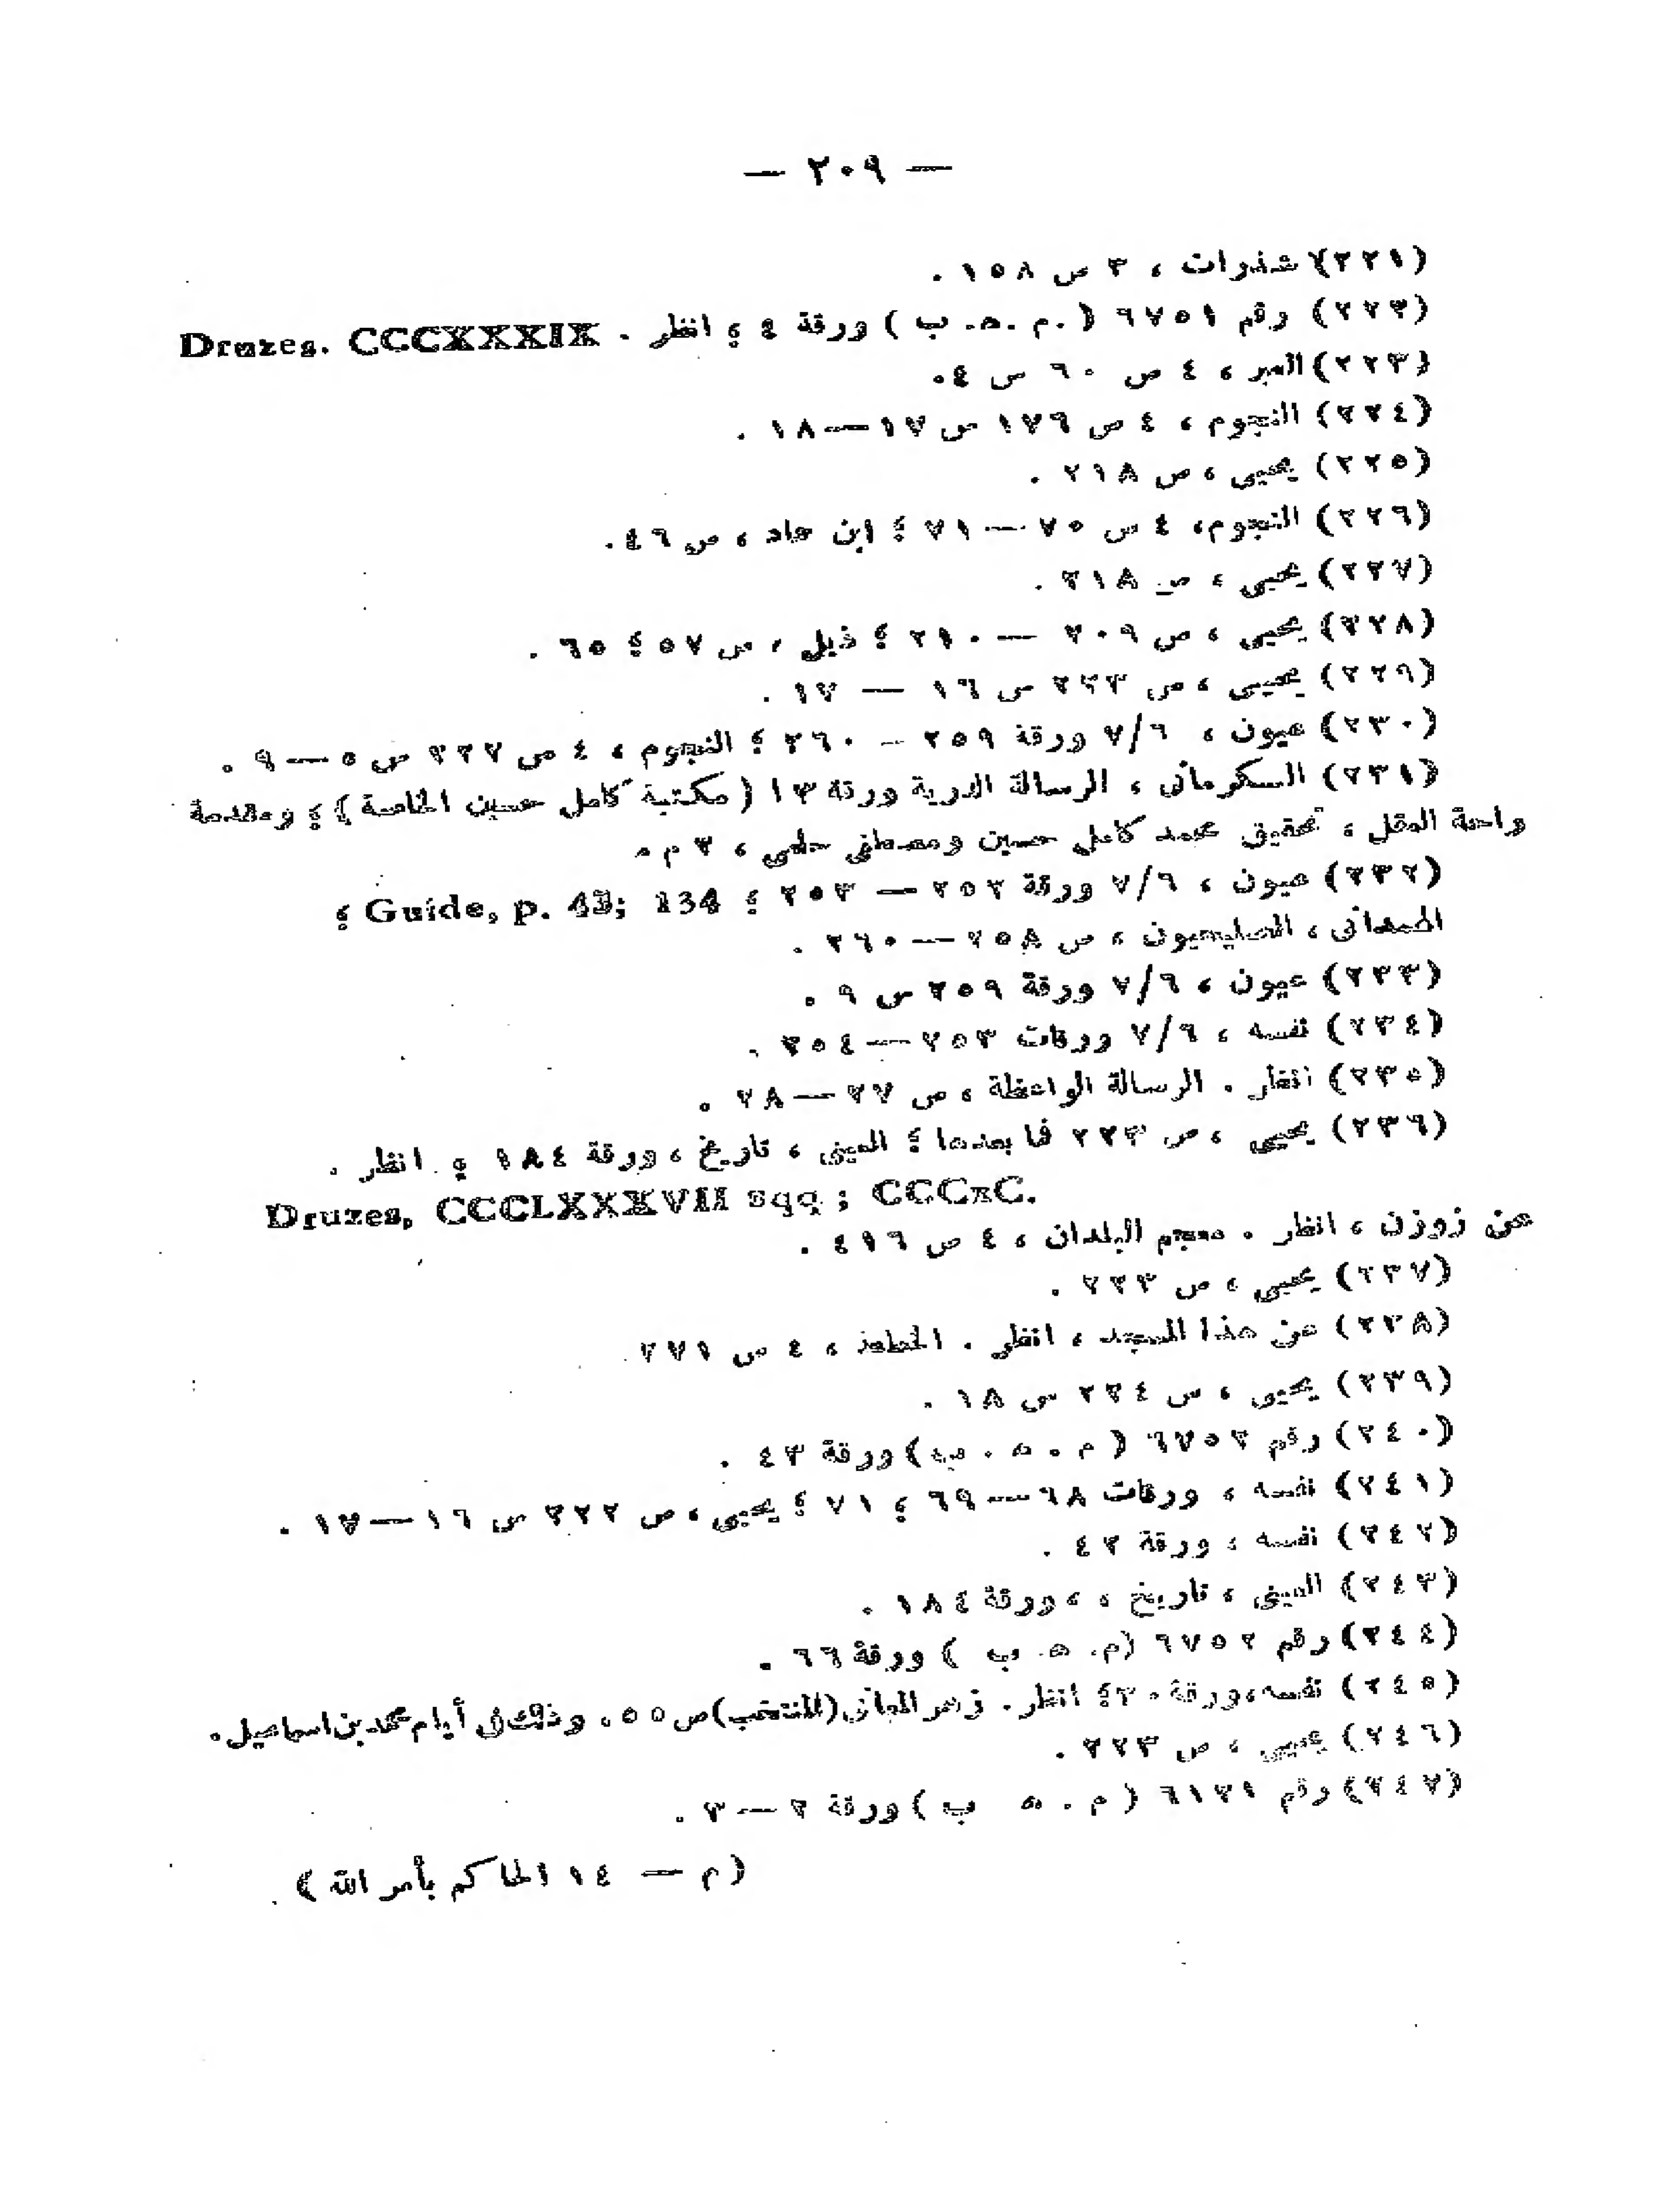 — ٢٠٩ —
(٢٢١) شذرات ، ٣ ص ١٥٨ .
(٢٢٢) رقم ٦٧٥١ ( م . ه . ب ) ورقة ٤ ؛ انظر . Druzes. CCCXXXIX
(٢٢٣) العبر ، ٤ ص ٦٠ س ٤ .
(٢٢٤) النجوم ، ٤ ص ١٧٦ س ١٧ — ١٨ .
(٢٢٥) يحيى ، ص ٢١٨ .
(٢٢٦) النجوم ، ٤ س ٧٥ — ٧١ ؛ ابن حماد ، ص ٤٦ .
(٢٢٧) يحيى ، ص ٢١٨ .
(٢٢٨) يحيى ، ص ٢٠٩ — ٢١٠ ؛ ذيل ، ص ٥٧ ؛ ٦٥ .
(٢٢٩) يحيى ، ص ٢٢٣ س ١٦ — ١٧ .
(٢٣٠) عيون ، ٧/٦ ورقة ٢٥٩ — ٢٦٠ ؛ النجوم ، ٤ ص ٢٢٧ س ٥ — ٩ .
(٢٣١) الكرمانى ، الرسالة الدرية ورقة ١٣ ( مكتبة كامل حسين الخاصة ) ؛ ومقدمة
راحة العقل ، تحقيق محمد كامل حسين ومصطفى حلمى ، ٣ م .
(٢٣٢) عيون ، ٧/٦ ورقة ٢٥٢ — ٢٥٣ ؛ Guide, p. 43; 134 ؛
الهمدانى ، الصليحيون ، ص ٢٥٨ — ٢٦٠ .
(٢٣٣) عيون ، ٧/٦ ورقة ٢٥٩ س ٩ .
(٢٣٤) نفسه ، ٧/٦ ورقات ٢٥٣ — ٢٥٤ .
(٢٣٥) انظر . الرسالة الواعظة ، ص ٢٧ — ٢٨ .
(٢٣٦) يحيى ، ص ٢٢٣ فما بعدها ؛ العينى ، تاريخ ، ورقة ١٨٤ ؛ انظر .
Druzes, CCCLXXXVII sqq ; CCCXC.
عن زوزن ، انظر . معجم البلدان ، ٤ ص ٤١٦ .
(٢٣٧) يحيى ، ص ٢٢٣ .
(٢٣٨) عن هذا المسجد ، انظر . الخطط ، ٤ ص ٢٧١
(٢٣٩) يحيى ، س ٢٢٤ س ١٨ .
(٢٤٠) رقم ٦٧٥٢ ( م . ه . ب ) ورقة ٤٣ .
(٢٤١) نفسه ، ورقات ٦٨ — ٦٩ ؛ ٧١ ؛ يحيى ، ص ٢٢٢ س ١٦ — ١٧ .
(٢٤٢) نفسه ، ورقة ٤٢ .
(٢٤٣) العينى ، تاريخ ، ، ورقة ١٨٤ .
(٢٤٤) رقم ٦٧٥٢ ( م . ه . ب ) ورقة ٦٦ .
(٢٤٥) نفسه ، ورقة ٣٠ ؛ انظر . زهر المعانى (المنتخب) ص ٥٥ . وذلك فى أيام محمد بن اسماعيل .
(٢٤٦) يحيى ، ص ٢٢٣ .
(٢٤٧) رقم ٦١٢١ ( م . ه ب ) ورقة ٢ — ٣ .
( م — ١٤ الحاكم بأمر الله ) .